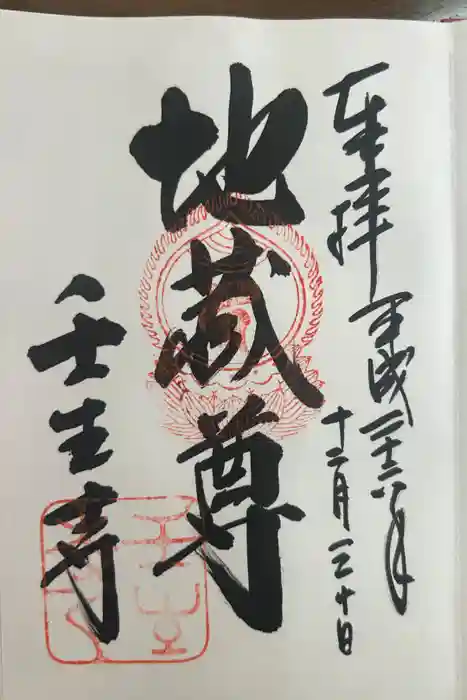 奉拝
平成二十六年
十二月三十日
地蔵尊
壬生寺